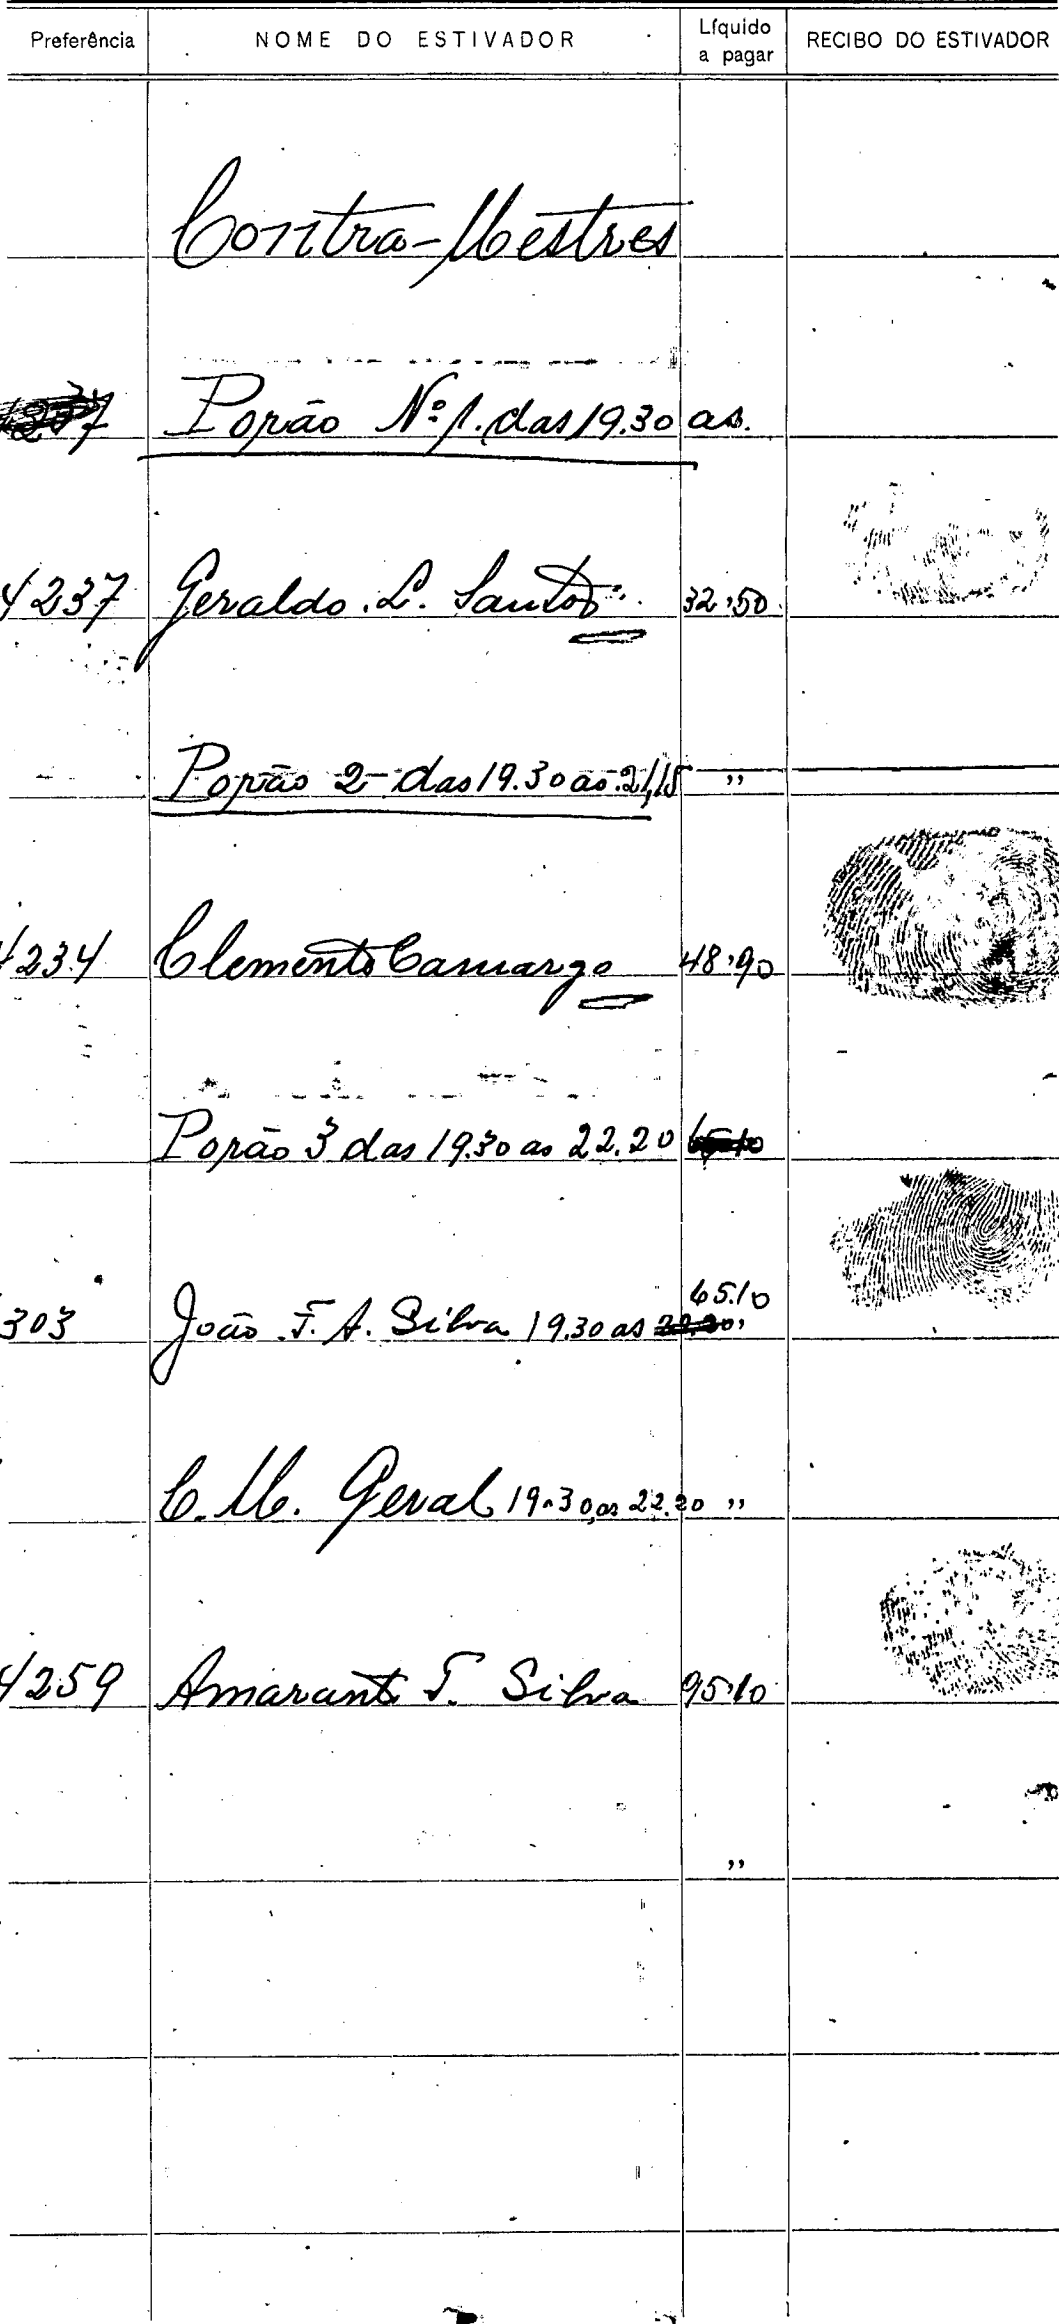 Preferência NOME DO ESTIVADOR Líquido a pagar RECIBO DO ESTIVADOR
Contra-Mestres
Porão Nº 1. das 19.30 as.
4237 Geraldo. L. Santos 32,50
Porão 2 - das 19.30 as 21,15 ,,
4234 Clemente Camargo 48,90
Porão 3 das 19.30 as 22.20
303 João F. A. Silva 19.30 as 65.10
C. M. Geral 19.30 as 22.20 ,,
4259 Amarante F. Silva 95,10
,,